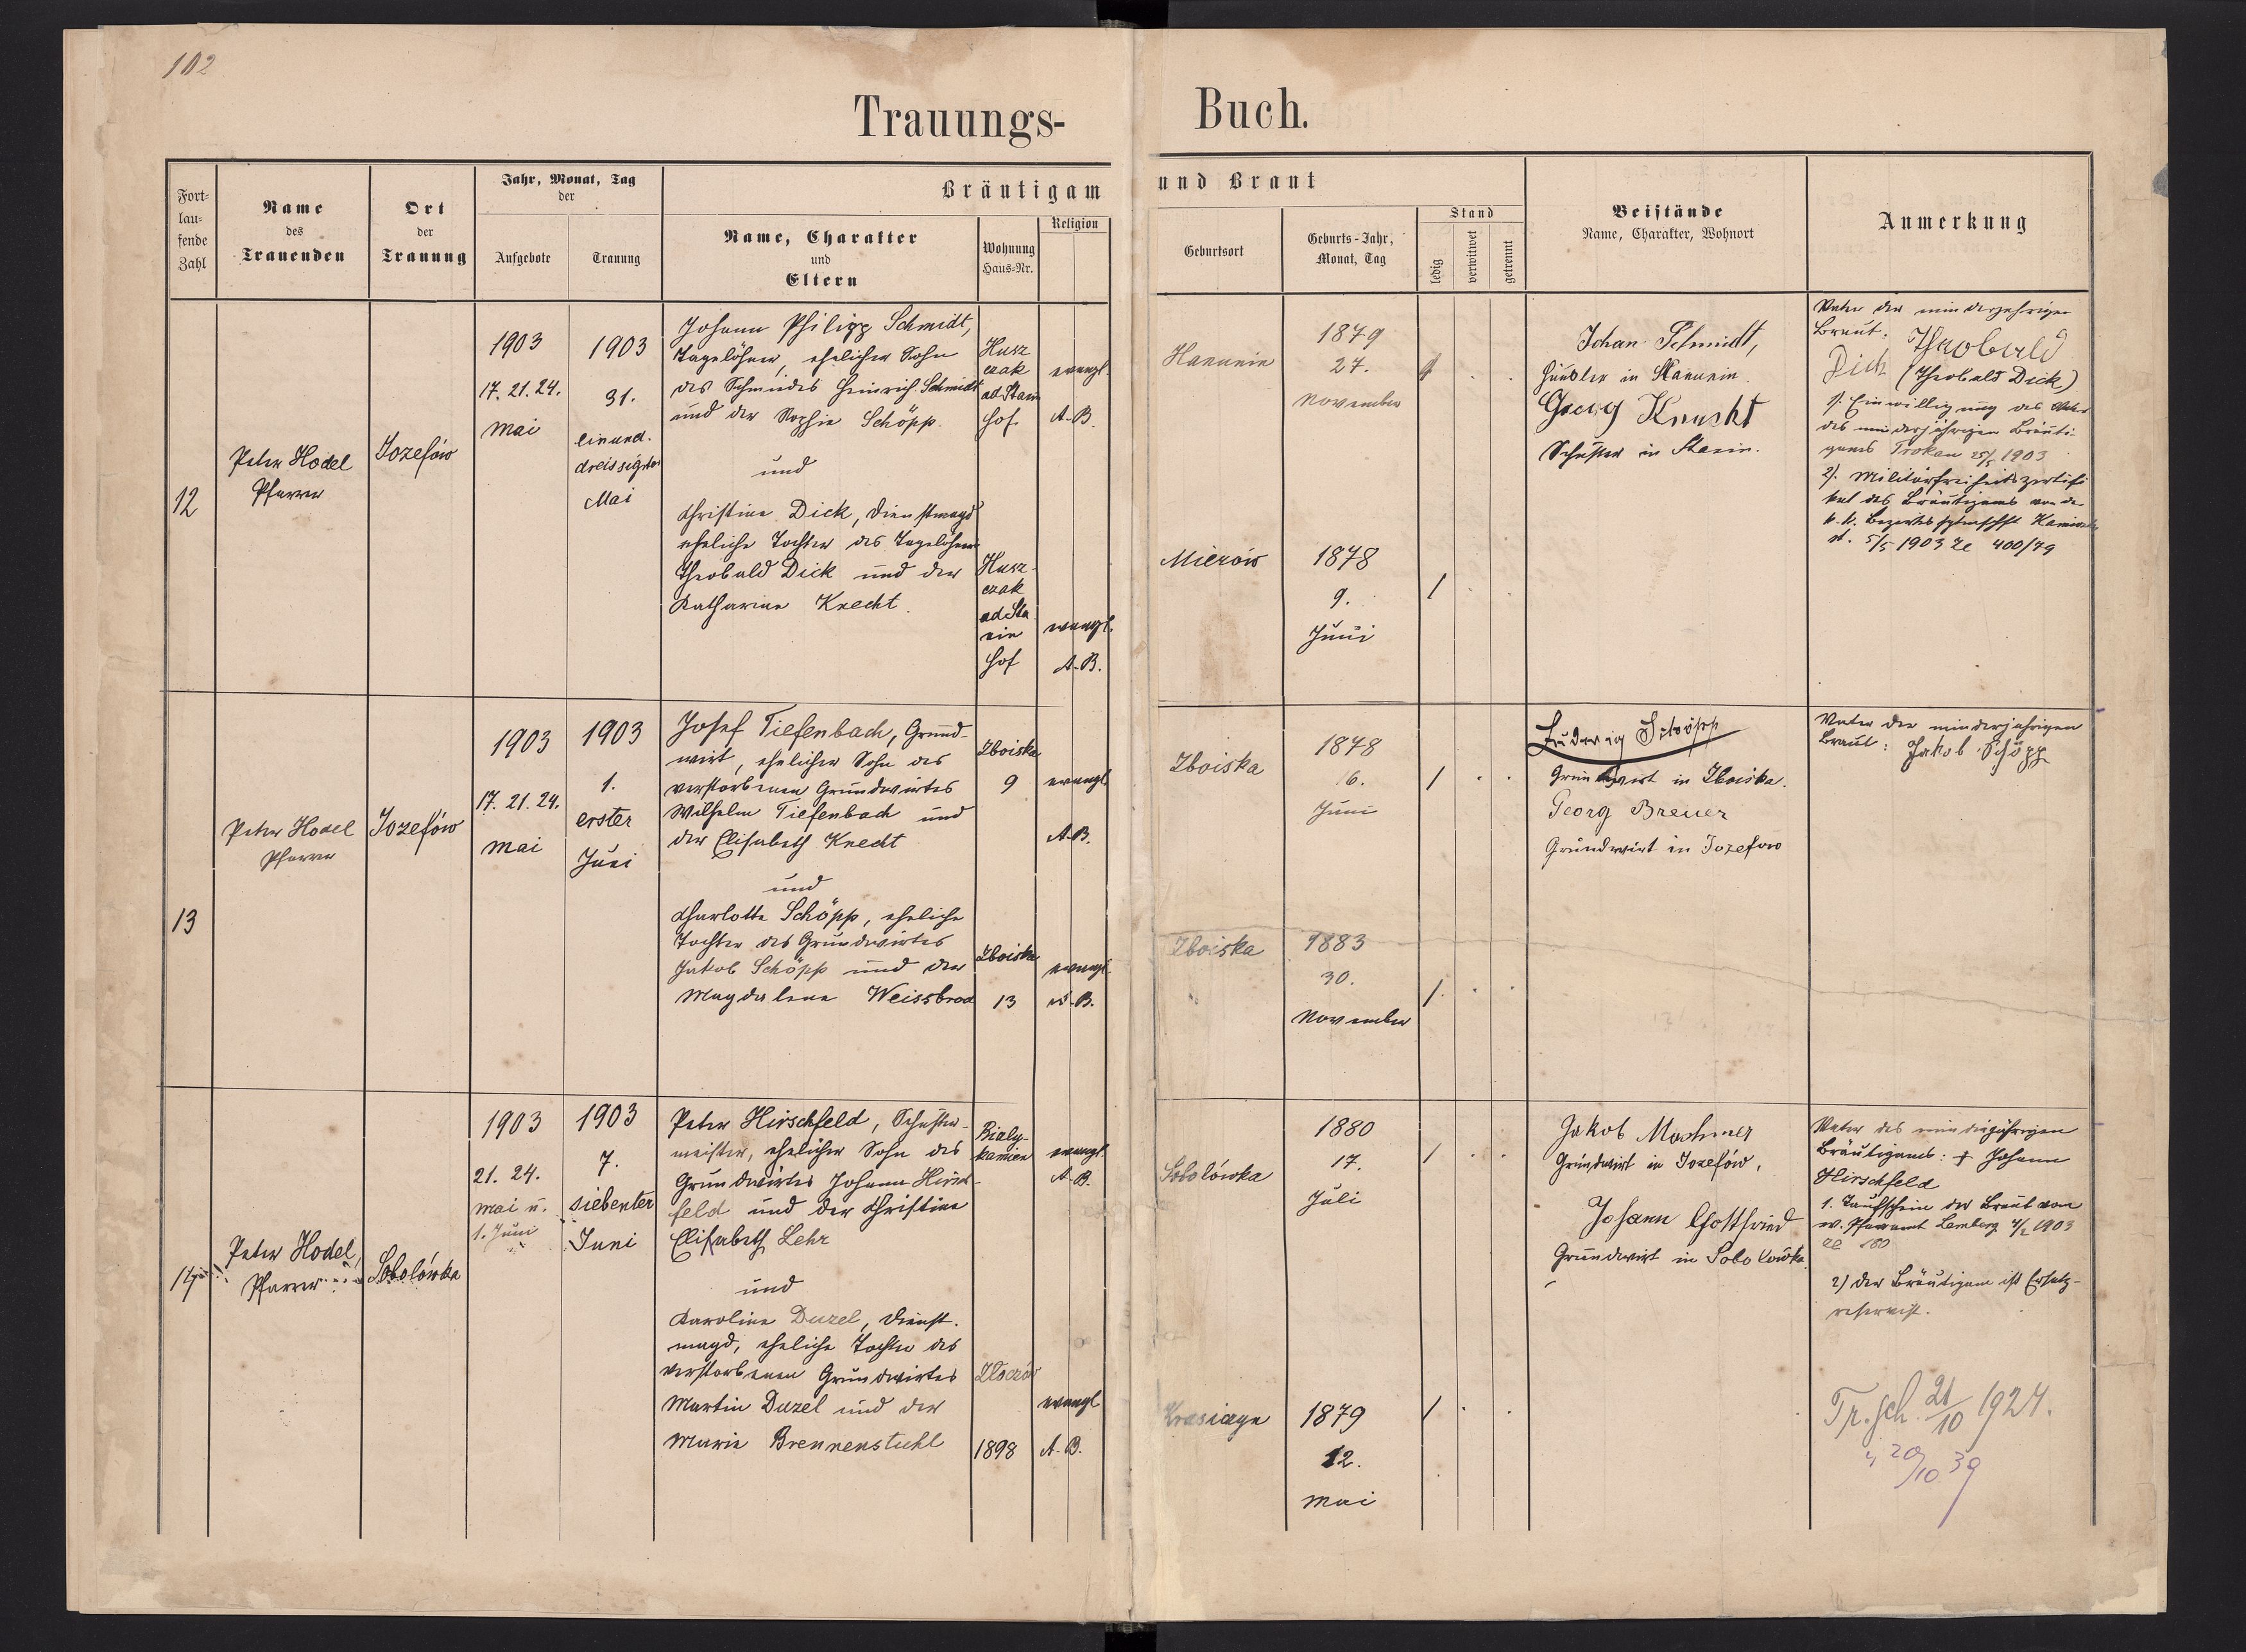 102
Trauungs-
Buch.
Fort-
lau-
fende
Zahl
Name
des
Trauenden
Ort
der
Trauung
Jahr, Monat, Tag
der
Aufgebote
Trauung
Bräutigam
Name, Charakter
und
Eltern
Wohnung
Haus-Nr.
Religion
und Braut
Geburtsort
Geburts-Jahr,
Monat, Tag
Stand
ledig
verwitwet
getrennt
Beistände
Name, Charakter, Wohnort
Anmerkung
12
Peter Hodel
Pfarrer
Jozefów
1903
17. 21. 24.
Mai
1903
31.
einund.
dreissigster
Mai
Johann Philipp Schmidt,
Tagelöhner, ehelicher Sohn
des Schmiedes Heinrich Schmidt
und der Sophie Schöpp.
und
Christine Dick, Dienstmagd
eheliche Tochter des Tagelöhners
Theobald Dick und der
Katharine Knecht.
Husz
czak
ad Stain
Hof
evangl.
A.B.
Husz-
czak
ad Sta
nin
Hof
evangl.
A.B.
Hanunin
1879
27.
November
1
Mierów
1878
9.
Juni
1
Johan Schmidt,
Häusler in Hanunin
Georg Knecht
Schuster in Stanin.
Vater der minderjährigen
Braut: Theobald
Dick (Theobald Dick)
1). Einwilligung des Vaters
des minderjährigen Bräuti-
gams 25/5 1903
2). Militärfreiheitszertifi
kat des Bräutigams von der
k.k. Bezirkshptmschft
5/5 1903 Zl 400/79
13
Peter Hodel
Pfarrer
Jozefów
1903
17. 21. 24.
Mai
1903
1.
erster
Juni
Josef Tiefenbach, Grund-
wirt, ehelicher Sohn des
verstorbenen Grundwirtes
Wilhelm Tiefenbach und
der Elisabeth Knecht
und
Charlotte Schöpp, eheliche
Tochter des Grundwirtes
Jakob Schöpp und der
Magdalena Weissbrod
Zboiska
9
evangl
A.B.
Zboiska
13
evangl
A.B.
Zboiska
1878
6.
Juni
1
Zboiska
1883
30.
November
1
Ludwig Schöpp
Grundwirt in Zboiska.
Georg Breuer
Grundwirt in Jozefow
Vater der minderjahrigen
Braut: Jakob Schöpp
14
Peter Hodel,
Pfarrer
Sobolówka
1903
21. 24.
Mai u.
1. Juni
1903
7.
siebenter
Juni
Peter Hirschfeld, Schuster-
meister, ehelicher Sohn des
Grundwirtes Johann Hirsch-
feld und der Christine
Elisabeth Lehr
und
Karoline Duzel, Dienst.
magd, eheliche Tochter des
verstorbenen Grundwirtes
Martin Duzel und der
Marie Brennenstuhl
Bialy-
kamien
evangl.
A.B.
Zloczów
1898
evangl
A.B.
Sobolówka
1880
17.
Juli
1
Krasiczyn
1879
12.
Mai
1
Jakob Machmer
Grundwirt in Jozefów,
Johann Gottfried
Grundwirt in Sobolowka.
Vater des minderjährigen
Bräutigams: † Johann
Hirschfeld
1. Taufschein der Braut vom
ev. Pfarramt Lemberg 4/2 1903
Zl 180
2) der Bräutigam ist Ersatz-
reservist.
Tr. sch. 21/10 1924.
" 20/10 39